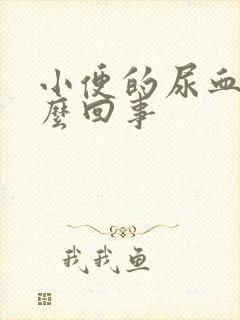 小便的尿血
麼回事
我我鱼